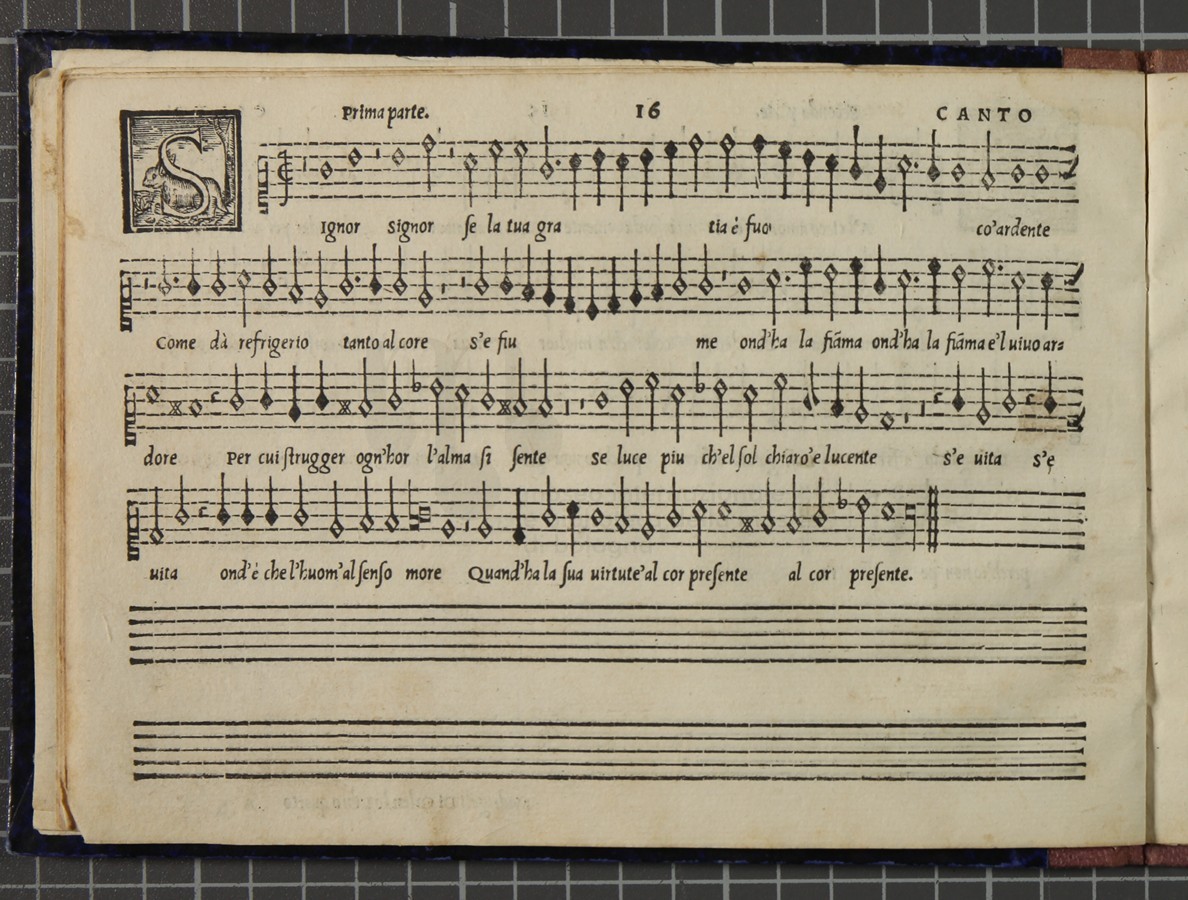 Prima parte. 16 CANTO
SIgnor Signor se la tua gra tia è fuo co'ardente
Come dà refrigerio tanto al core s'e fiu me ond'ha la fiãma ond'ha la fiãma e'l uiuo ar=
dore Per cui strugger ogn'hor l'alma si sente Se luce piu ch'el sol chiaro'e lucente S'e uita s'e
uita ond'è che l'huom'al senso more Quand'ha la sua uirtute'al cor presente al cor presente.